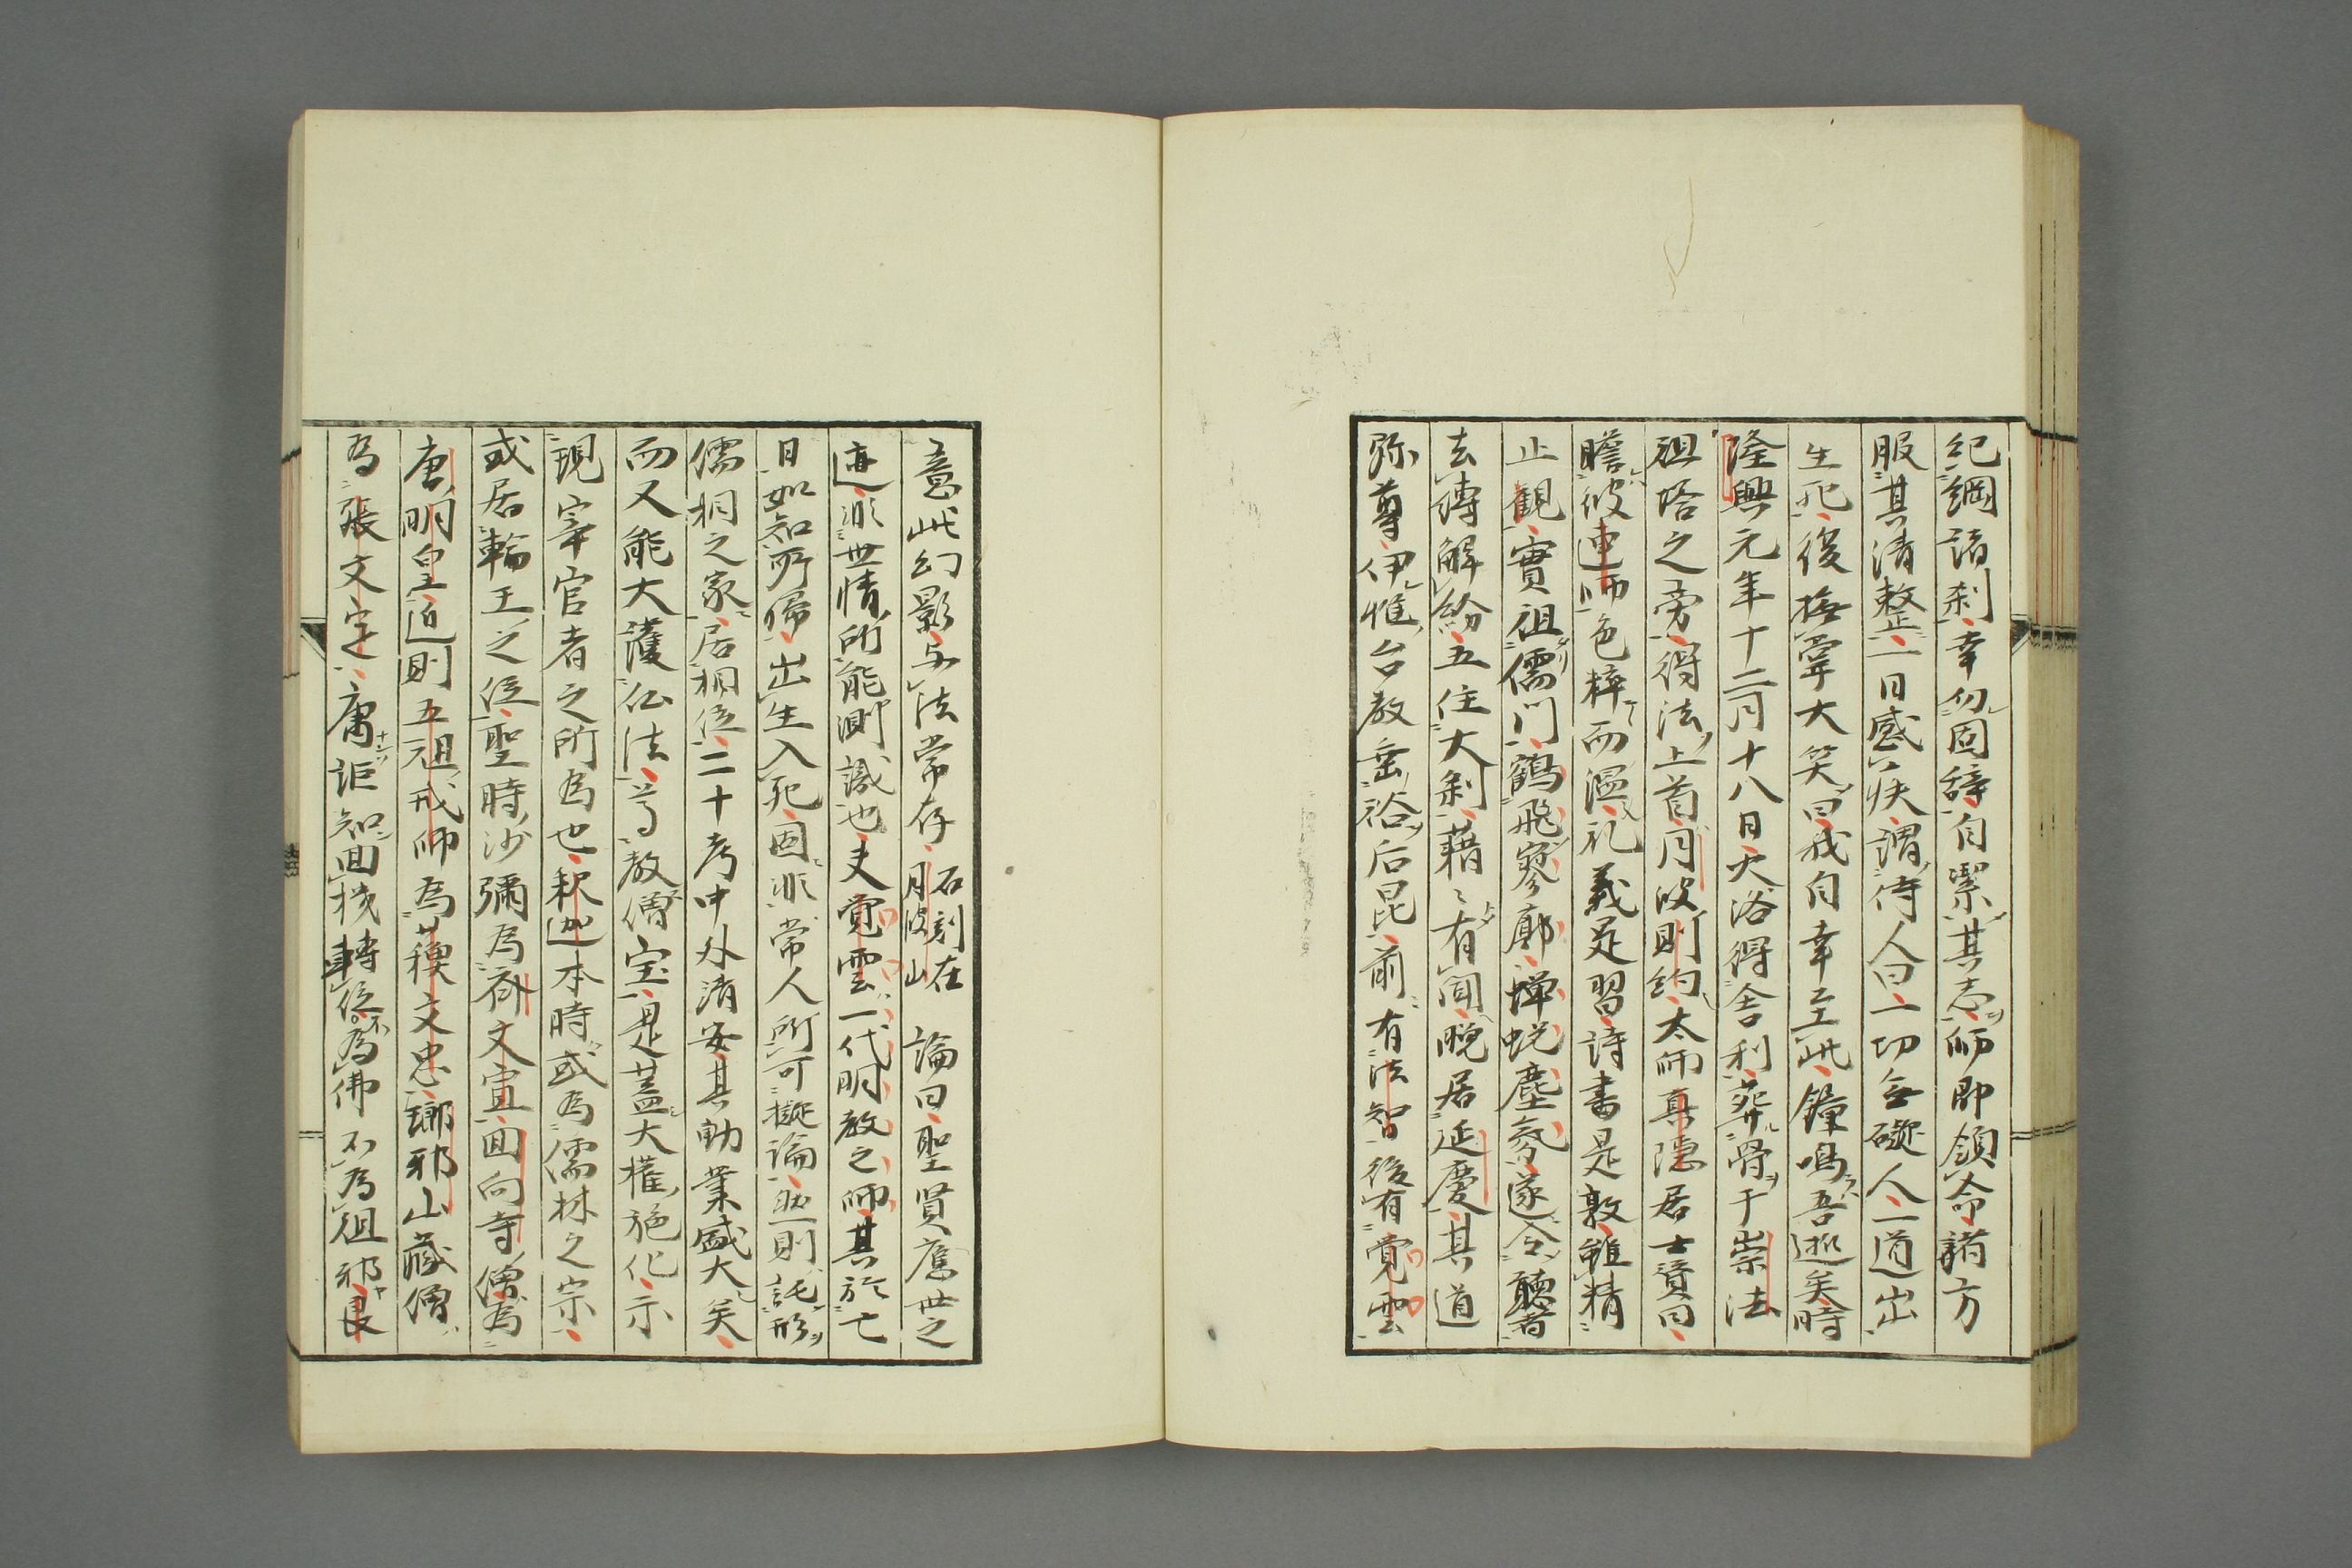 紀綱諸刹幸勿固辞自潔其志師即領命諸方
服其清整一日感疾謂侍人曰一切無礙人一道出
生死後撫掌大笑曰我自幸至此鐘鳴吾逝矣時
隆興元年十二月十八日火浴得舍利葬骨于崇法
祖塔之旁得法上首月波則約太師真隱居士賛曰
瞻彼連師色粹而温礼義是習詩書是敦雖精
止観實祖儒門鶴飛寥廓蝉蛻塵氛遂令聽者
去縛解紛五住大刹藉〻有聞晩居延慶其道
弥尊伊惟台教垂裕后昆前有法智後有覚雲
意此幻影与法常存 石刻在月波山 論曰聖賢應世之
迹非世情所能測識也夫覚雲一代明教之師其於亡
日如知所帰出生入死固非常人所可擬論然則託形
儒相之家居相位二十考中外清安其勛業盛大矣
而又能大護仏法尊教僧宝是蓋大權施化示
現宰官者之所為也釈迦本時或為儒林之宗
或居輪王之位聖時沙彌為齊文宣回向寺僧為
唐明皇近則五祖戒師為蘓文忠瑯邪山蔵僧
為張文定庸詎知回機轉位不為佛不為祖邪良